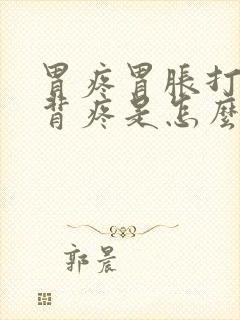 胃疼胃脹打
背疼是怎麼
郭晨